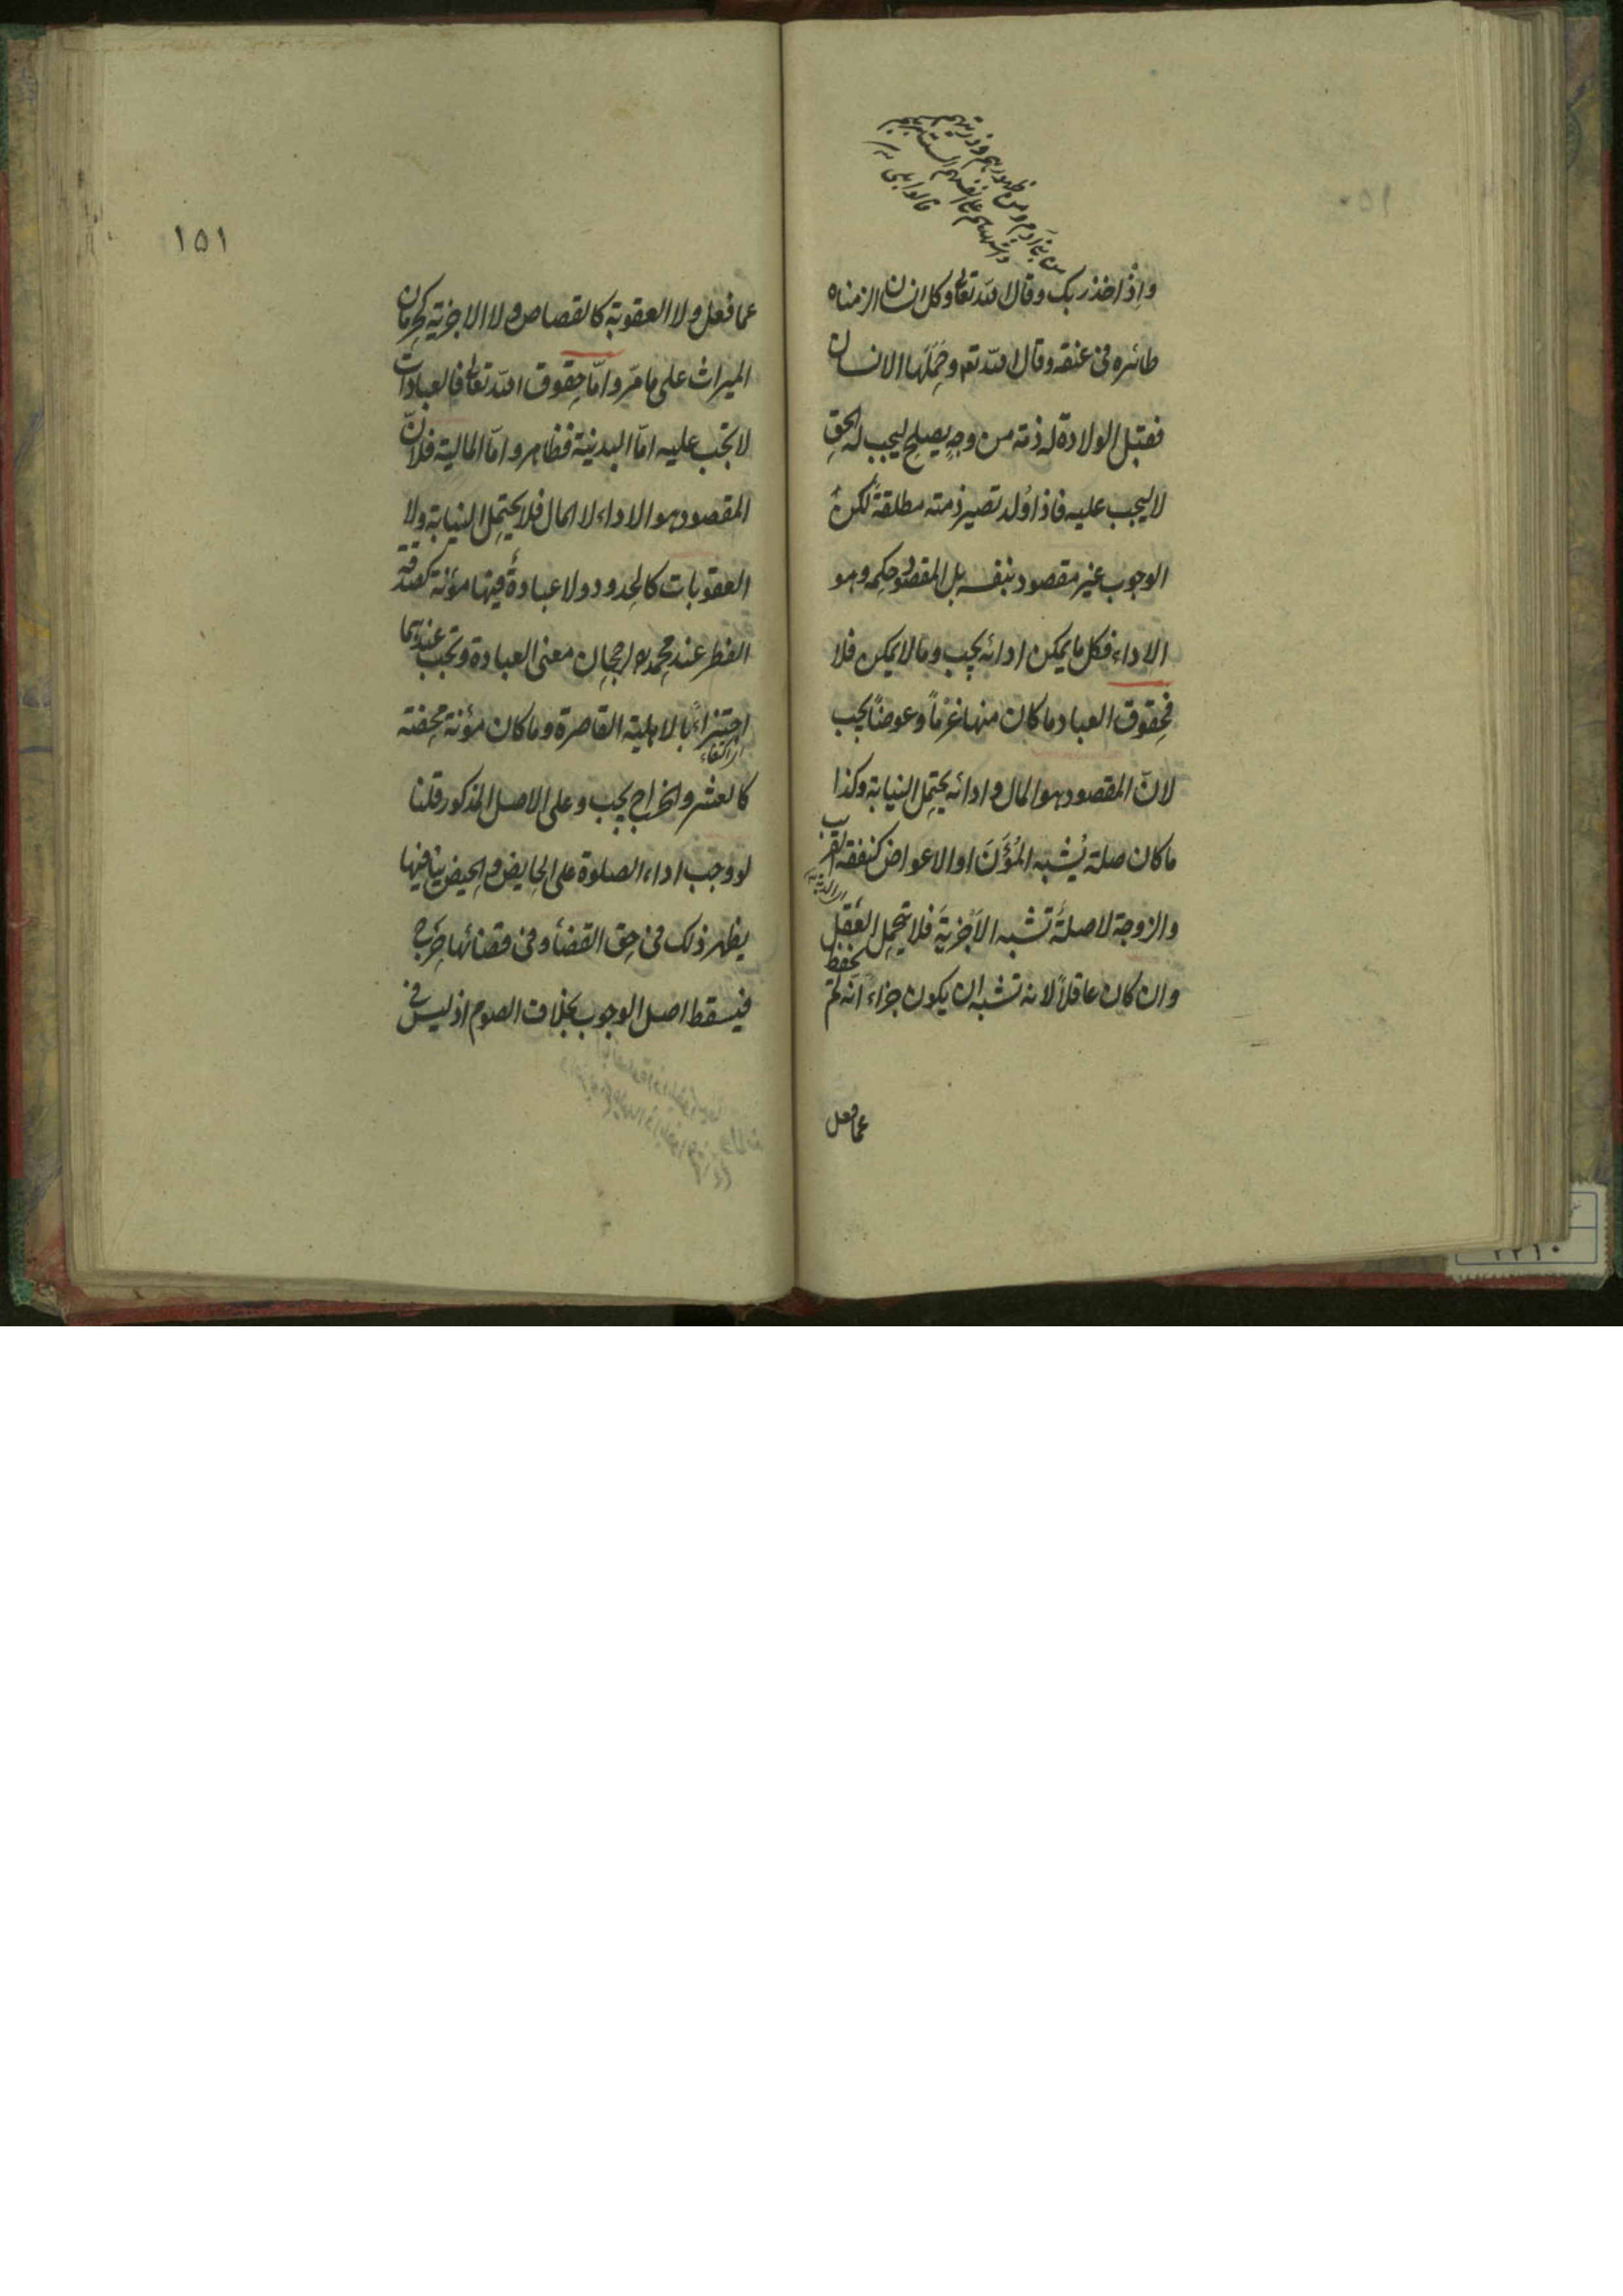 من بنى آدم من ظهورهم وذريتهم
واشهدهم على انفسهم الست بربكم
قالوا بلى
واِذْ اخذ ربك وقال الله تعالى وكل انسان الزمناه
طائره فى عنقه وقال الله تع وحَمَلَها الانسان
فقبل الولادة له ذمة من وجهٍ يصلح ليجب له الحق
لا ليجب عليه فاذا وُلد تصير ذمته مطلقةً لكن
الوجوب غير مقصود بنفسه بل المقصود حكمه وهو
الاداء فكل ما يمكن ادائه يجب وما لا يمكن فلا
فحقوق العباد ما كان منها غرماً وعوضاً يجب
لانّ المقصود هو المال وادائه يحتمل النيابة وكذا
ما كان صلة يُشبه المُؤَنَ او الاعواض كنفقة القريب
والزوجة لا صلةً تشبه الاَجْزِيَةَ فلا يتحمل العَقْل
وان كان عاقلاً لانه تشبه ان يكون جزاءً انّه لم يحفظ
عما فعل
١٥١
عما فعل ولا العقوبة كالقصاص ولا الاجزية كحرمان
الميراث على ما مرّ وامّا حقوق الله تعالى فالعبادات
لا تجب عليه امّا البدنية فظاهر وامّا المالية فلانّ
المقصود هو الاداء لا المال فلا يحتمل النيابة ولا
العقوبات كالحدود ولا عبادةٌ فيها مؤنة كصدقة
الفطر عند محمد رح لرجحان معنى العبادة وتجب عندهما
اجتزاءً بالاهلية القاصرة وما كان مؤنة محضة
اى اكتفاء
كالعشر والخراج يجب وعلى الاصل المذكور قلنا
لو وجب اداء الصلوة على الحايض والحيض ينافيها
يظهر ذلك فى حق القضأ وفى قضائها حَرَج
فيسقط اصل الوجوب بخلاف الصوم اذ ليس فى